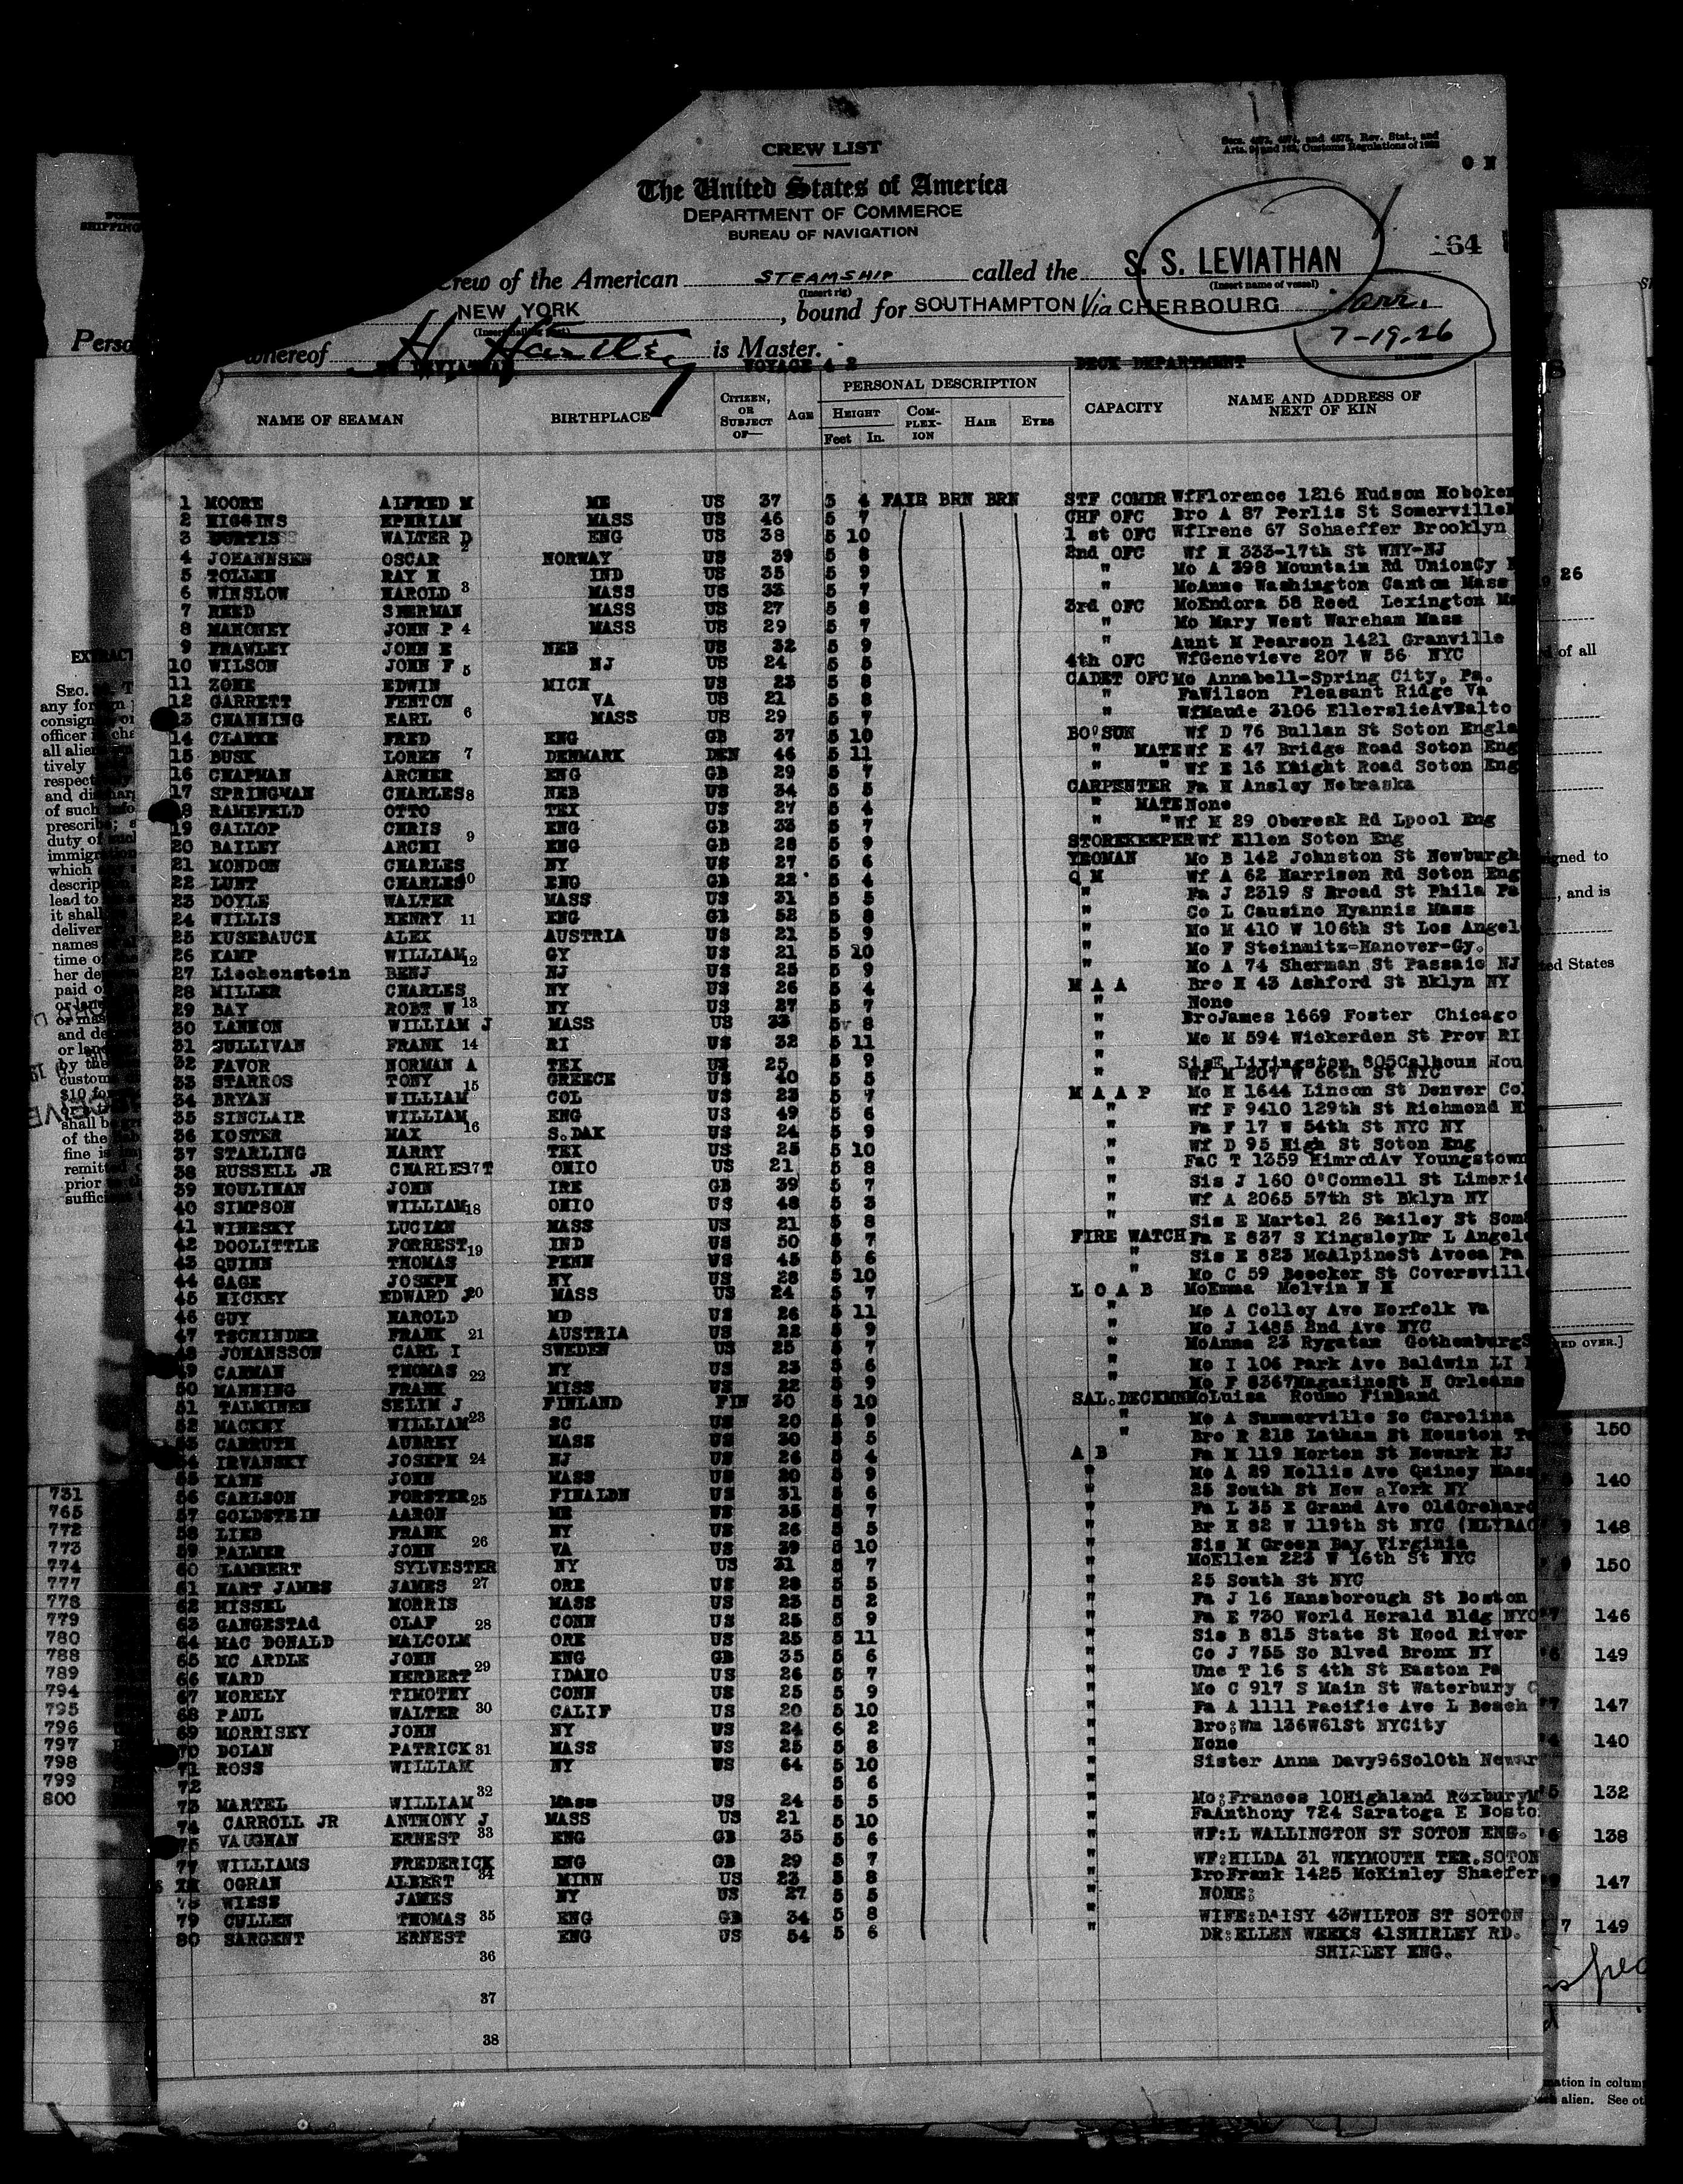 CREW LIST
Secs. 4573, 4574, and 4575, Rev. Stat., and
Customs Regulations of
The United States of America
DEPARTMENT OF COMMERCE
BUREAU OF NAVIGATION
64
Crew of the American STEAMSHIP called the S. S. LEVIATHAN
(Insert rig) (Insert name of vessel)
NEW YORK, bound for SOUTHAMPTON Via CHERBOURG arr.
7-19-26
whereof H Hartley is Master.
LEVIATHAN VOYAGE DECK DEPARTMENT
NAME OF SEAMAN BIRTHPLACE CITIZEN, OR SUBJECT OF— AGE PERSONAL DESCRIPTION HEIGHT Feet In. COMPLEXION HAIR EYES CAPACITY NAME AND ADDRESS OF NEXT OF KIN
1 MOORE ALFRED M ME US 37 5 4 FAIR BRN BRN STF COMDR WfFlorence 1216 Hudson Hoboken
2 HIGGINS EPHRIAM MASS US 46 5 7 CHF OFC Bro A 87 Perlis St Somerville
3 CURTIS WALTER D ENG US 38 5 10 1 st OFC WfIrene 67 Schaeffer Brooklyn
4 JOHANNSEN OSCAR NORWAY US 39 5 8 2nd OFC Wf H 333-17th St WNY-NJ
5 TOLLEN RAY H IND US 35 5 9 " Mo A 398 Mountain Rd UnionCy
6 WINSLOW HAROLD MASS US 33 5 7 " MoAnne Washington Canton Mass
7 REED SHERMAN MASS US 27 5 8 3rd OFC MoEndora 58 Reed Lexington
8 MAHONEY JOHN P MASS US 29 5 7 " Mo Mary West Wareham Mass
9 FRAWLEY JOHN E NEB US 32 5 9 " Aunt M Pearson 1421 Granville
10 WILSON JOHN F NJ US 24 5 5 4th OFC WfGenevieve 207 W 56 NYC
11 ZOHE EDWIN MICH US 23 5 8 CADET OFC Mo Annabell-Spring City, Pa.
12 GARRETT FENTON VA US 21 5 8 " FaWilson Pleasant Ridge Va
13 CHANNING EARL MASS US 29 5 7 " WfMaude 3106 EllerslieAvBalto
14 CLARKE FRED ENG GB 37 5 10 BO'SUN Wf D 76 Bullan St Soton Engla
15 BUSK LOREN DENMARK DEN 46 5 11 " MATE Wf E 47 Bridge Road Soton Eng
16 CHAPMAN ARCHER ENG GB 29 5 7 " " Wf E 16 Knight Road Soton Eng
17 SPRINGMAN CHARLES NEB US 34 5 5 CARPENTER Fa H Ansley Nebraska
18 RAMEFELD OTTO TEX US 27 5 4 " MATE None
19 GALLOP CHRIS ENG GB 33 5 7 " " Wf M 29 Oberesk Rd Lpool Eng
20 BAILEY ARCHI ENG GB 28 5 9 STOREKEEPER Wf Ellen Soton Eng
21 MONDON CHARLES NY US 27 5 6 YEOMAN Mo B 142 Johnston St Newburgh
22 LUNT CHARLES ENG GB 22 5 4 Q M Wf A 62 Harrison Rd Soton Eng
23 DOYLE WALTER MASS US 31 5 5 " Fa J 2319 S Broad St Phila Pa
24 WILLIS HENRY ENG GB 52 5 8 " Co L Causino Hyannis Mass
25 KUSEBAUCH ALEX AUSTRIA US 21 5 9 " Mo M 410 W 106th St Los Angel
26 KAMP WILLIAM GY US 21 5 10 " Mo F Steinmitz-Hanover-Gy.
27 Liechenstein BENJ NJ US 25 5 9 " Mo A 74 Sherman St Passaic NJ
28 MILLER CHARLES NY US 26 5 4 M A A Bro H 43 Ashford St Bklyn NY
29 BAY ROBT W NY US 27 5 7 " None
30 LANNON WILLIAM J MASS US 33 5 8 " BroJames 1669 Foster Chicago
31 SULLIVAN FRANK RI US 32 5 11 " Mo M 594 Wickerden St Prov RI
32 FAVOR NORMAN A TEX US 25 5 9 " SisE Livingston 805Calhoun Hou
33 STARROS TONY GREECE US 40 5 5 " Wf M 207 W 66th St NYC
34 BRYAN WILLIAM COL US 23 5 7 M A A P Mo H 1644 Lincon St Denver Co
35 SINCLAIR WILLIAM ENG US 49 5 6 " Wf F 9410 129th St Richmond
36 KOSTER MAX S.DAK US 24 5 9 " Fa F 17 W 54th St NYC NY
37 STARLING HARRY TEX US 25 5 10 " Wf D 95 High St Soton Eng
38 RUSSELL JR CHARLES T OHIO US 21 5 8 " FaC T 1359 NimrodAv Youngstown
39 HOULIHAN JOHN IRE GB 39 5 7 " Sis J 160 O'Connell St Limeri
40 SIMPSON WILLIAM OHIO US 48 5 3 " Wf A 2065 57th St Bklyn NY
41 WINESKY LUCIAN MASS US 21 5 8 " Sis E Martel 26 Bailey St Som
42 DOOLITTLE FORREST IND US 50 5 7 FIRE WATCH Fa E 837 S KingsleyDr L Angel
43 QUINN THOMAS PENN US 45 5 6 " Sis E 823 McAlpineSt Avoca Pa
44 GAGE JOSEPH NY US 28 5 10 " Mo C 59 Beecker St Coversvill
45 HICKEY EDWARD J MASS US 24 5 7 L O A B MoEmma Melvin N H
46 GUY HAROLD MD US 26 5 11 " Mo A Colley Ave Norfolk Va
47 TSCHINDER FRANK AUSTRIA US 22 5 9 " Mo J 1485 2nd Ave NYC
48 JOHANSSON CARL I SWEDEN US 25 5 7 " MoAnna 23 Rygatan Gothenburg
49 CARMAN THOMAS NY US 23 5 6 " Mo I 106 Park Ave Baldwin LI
50 MANNING FRANK MISS US 22 5 9 " Mo F 8367MagazineSt N Orleans
51 TALMINEN SELIM J FINLAND FIN 30 5 10 SAL.DECKMN MoLuisa Roumo Finland
52 MACKEY WILLIAM SC US 20 5 9 " Mo A Summerville So Carolina
53 CARRUTH AUBREY MASS US 30 5 5 " Bro R 218 Latham St Houston
54 IRVANSKY JOSEPH NJ US 26 5 4 A B Fa M 119 Morten St Newark NJ
55 KANE JOHN MASS US 20 5 9 " Mo A 29 Hollis Ave Quincy Mass
56 CARLSON FORSTER FINALDN US 31 5 6 " 25 South St New York NY
57 GOLDSTEIN AARON ME US 35 5 7 " Fa L 35 E Grand Ave OldOrchard
58 LIEB FRANK NY US 26 5 5 " Br H 82 W 119th St NYC
59 PALMER JOHN VA US 39 5 10 " Sis M Green Bay Virginia
60 LAMBERT SYLVESTER NY US 31 5 7 " MoEllen 223 W 16th St NYC
61 HART JAMES JAMES ORE US 28 5 5 " 25 South St NYC
62 HISSEL MORRIS MASS US 23 5 2 " Fa J 16 Hansborough St Boston
63 GANGESTAd OLAF CONN US 25 5 9 " Fa E 730 World Herald Bldg NYC
64 MAC DONALD MALCOLM ORE US 25 5 11 " Sis B 815 State St Hood River
65 MC ARDLE JOHN ENG GB 35 5 6 " Co J 755 So Blved Bronx NY
66 WARD HERBERT IDAHO US 26 5 7 " Unc T 16 S 4th St Easton Pa
67 MORELY TIMOTHY CONN US 25 5 9 " Mo C 917 S Main St Waterbury C
68 PAUL WALTER CALIF US 20 5 10 " Fa A 1111 Pacific Ave L Beach
69 MORRISEY JOHN NY US 24 6 2 " Bro;Wm 136W61St NYCity
70 DOLAN PATRICK MASS US 25 5 8 " None
71 ROSS WILLIAM NY US 64 5 10 " Sister Anna Davy96So10th Newar
72 5 6 "
73 MARTEL WILLIAM Mass US 24 5 5 " Mo;Frances 10Highland Roxbury
74 CARROLL JR ANTHONY J MASS US 21 5 10 " FaAnthony 724 Saratoga E Bosto
75 VAUGHAN ERNEST ENG GB 35 5 6 " WF:L WALLINGTON ST SOTON ENG.
77 WILLIAMS FREDERICK ENG GB 29 5 7 " WF:HILDA 31 WEYMOUTH TER.SOTON
OGRAN ALBERT MINN US 23 5 8 " BroFrank 1425 McKinley Shaefer
78 WIESS JAMES NY US 27 5 5 " NONE;
79 CULLEN THOMAS ENG GB 34 5 8 " WIFE:DAISY 43WILTON ST SOTON
80 SARGENT ERNEST ENG US 54 5 6 " DR:ELLEN WEEKS 41SHIRLEY RD.
SHIRLEY ENG.
36
37
38
731
765
772
773
774
777
778
779
780
788
789
794
795
796
797
798
799
800
26
of all
signed to
, and is
States
150
140
148
150
146
149
147
140
132
138
147
149